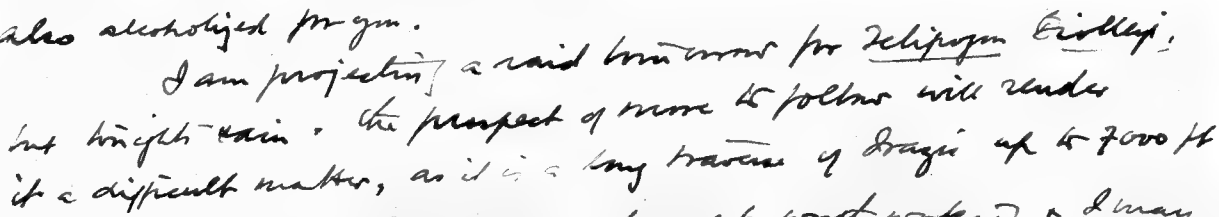 also alcoholized for you.
I am projecting a raid tomorrow for Telipogon Endlich,
but tonight's rain & the prospect of more to follow will render
it a difficult matter, as it is a long traverse of Irazú up to 7000 ft
I may